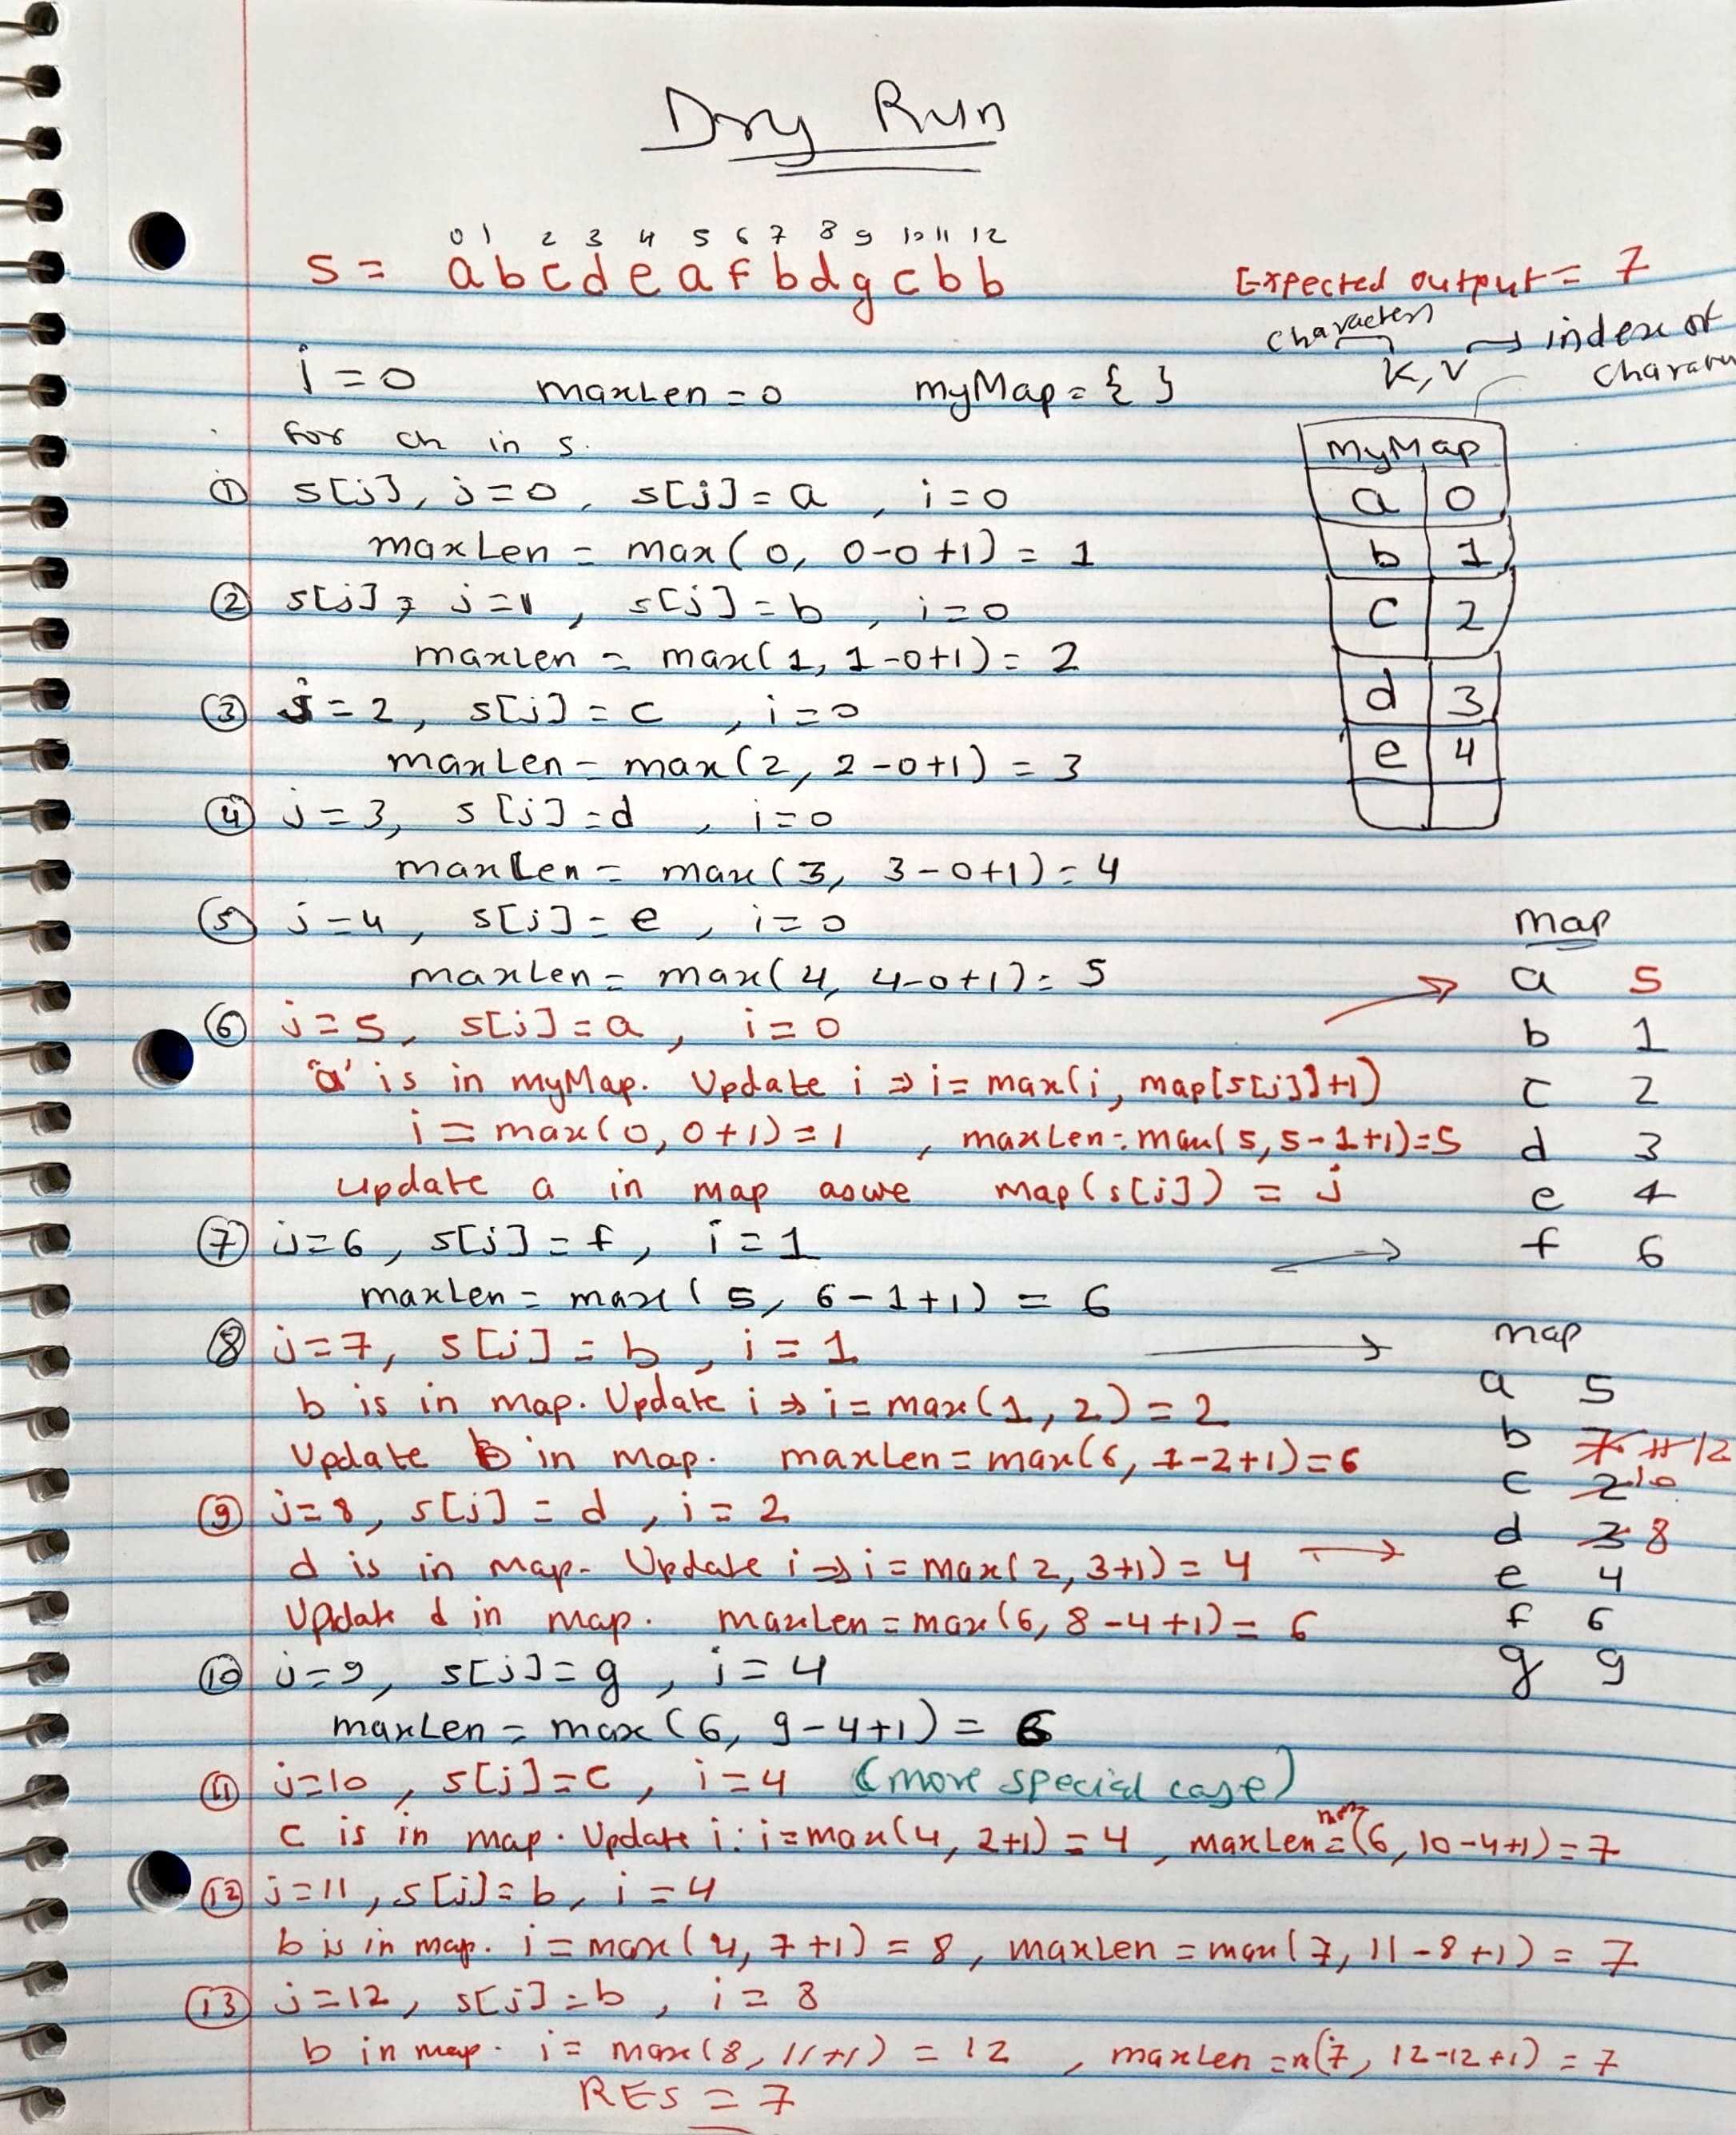 Dry Run
0 1 2 3 4 5 6 7 8 9 10 11 12
s = a b c d e a f b d g c b b
Expected output = 7
characters
K, V → index of
i = 0 maxLen = 0 myMap = { }
for ch in s.
MyMap
a 0
b 1
c 2
d 3
e 4
① s[j], j=0, s[j]=a, i=0
maxLen = max(0, 0-0+1) = 1
② s[j], j=1, s[j]=b, i=0
maxLen = max(1, 1-0+1) = 2
③ j=2, s[j]=c, i=0
maxLen = max(2, 2-0+1) = 3
④ j=3, s[j]=d, i=0
maxLen = max(3, 3-0+1) = 4
⑤ j=4, s[j]=e, i=0
maxLen = max(4, 4-0+1) = 5
⑥ j=5, s[j]=a, i=0
'a' is in myMap. Update i ⇒ i = max(i, map[s[j]]+1)
i = max(0, 0+1) = 1, maxLen = max(5, 5-1+1) = 5
update a in map map(s[j]) = j
map
a 5
b 1
c 2
d 3
e 4
f 6
⑦ j=6, s[j]=f, i=1 →
maxLen = max(5, 6-1+1) = 6
⑧ j=7, s[j]=b, i=1 →
b is in map. Update i ⇒ i = max(1, 2) = 2
Update b in map. maxLen = max(6, 7-2+1) = 6
⑨ j=8, s[j]=d, i=2
d is in map. Update i ⇒ i = max(2, 3+1) = 4 →
Update d in map. maxLen = max(6, 8-4+1) = 6
map
a 5
b 7 11 12
c 2 10
d 3 8
e 4
f 6
g 9
⑩ j=9, s[j]=g, i=4
maxLen = max(6, 9-4+1) = 6
⑪ j=10, s[j]=c, i=4 (more special case)
c is in map. Update i: i=max(4, 2+1) = 4, maxLen = max(6, 10-4+1) = 7
⑫ j=11, s[j]=b, i=4
b is in map. i = max(4, 7+1) = 8, maxLen = max(7, 11-8+1) = 7
⑬ j=12, s[j]=b, i=8
b in map. i = max(8, 11+1) = 12, maxLen = m(7, 12-12+1) = 7
RES = 7